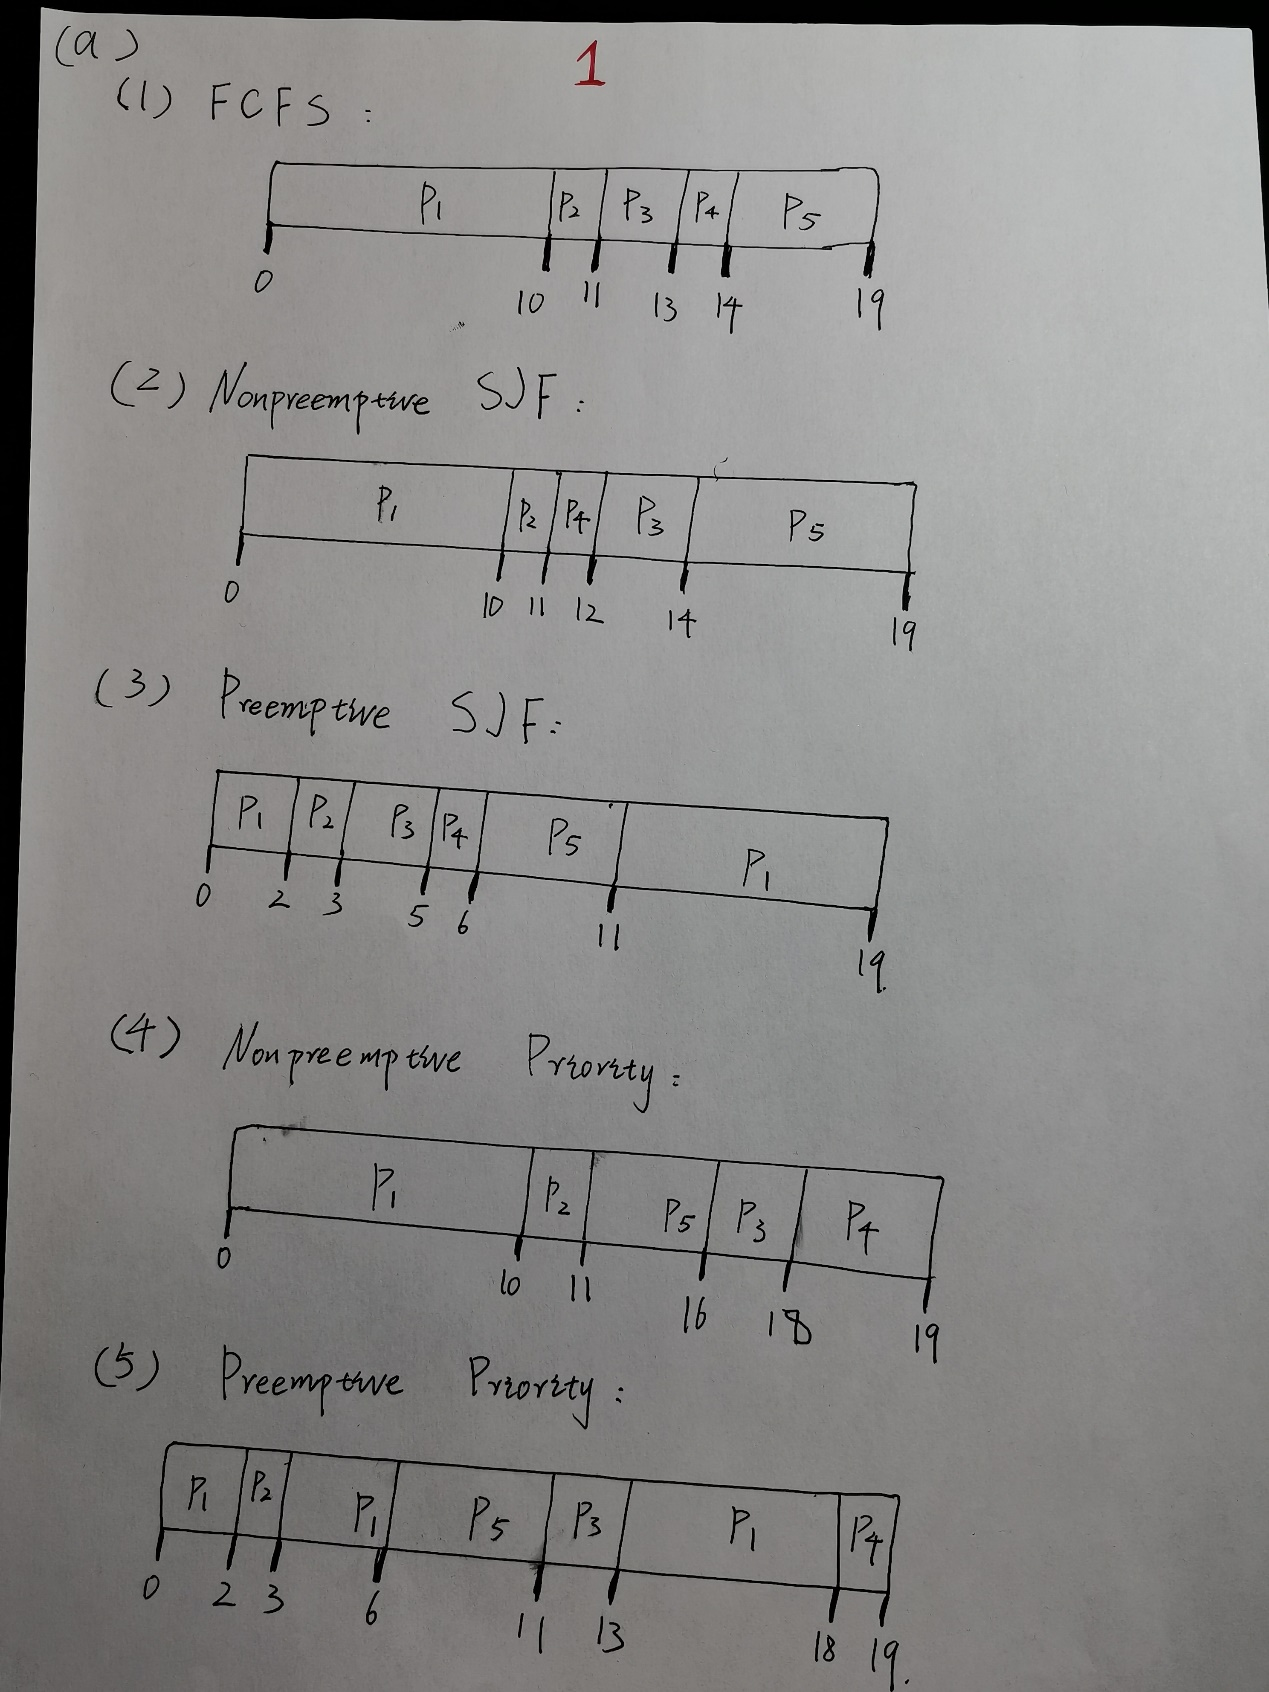 (a)
1
(1) FCFS :
P1 P2 P3 P4 P5
0 10 11 13 14 19
(2) Nonpreemptive SJF :
P1 P2 P4 P3 P5
0 10 11 12 14 19
(3) Preemptive SJF :
P1 P2 P3 P4 P5 P1
0 2 3 5 6 11 19.
(4) Nonpreemptive Priority :
P1 P2 P5 P3 P4
0 10 11 16 18 19
(5) Preemptive Priority :
P1 P2 P1 P5 P3 P1 P4
0 2 3 6 11 13 18 19.